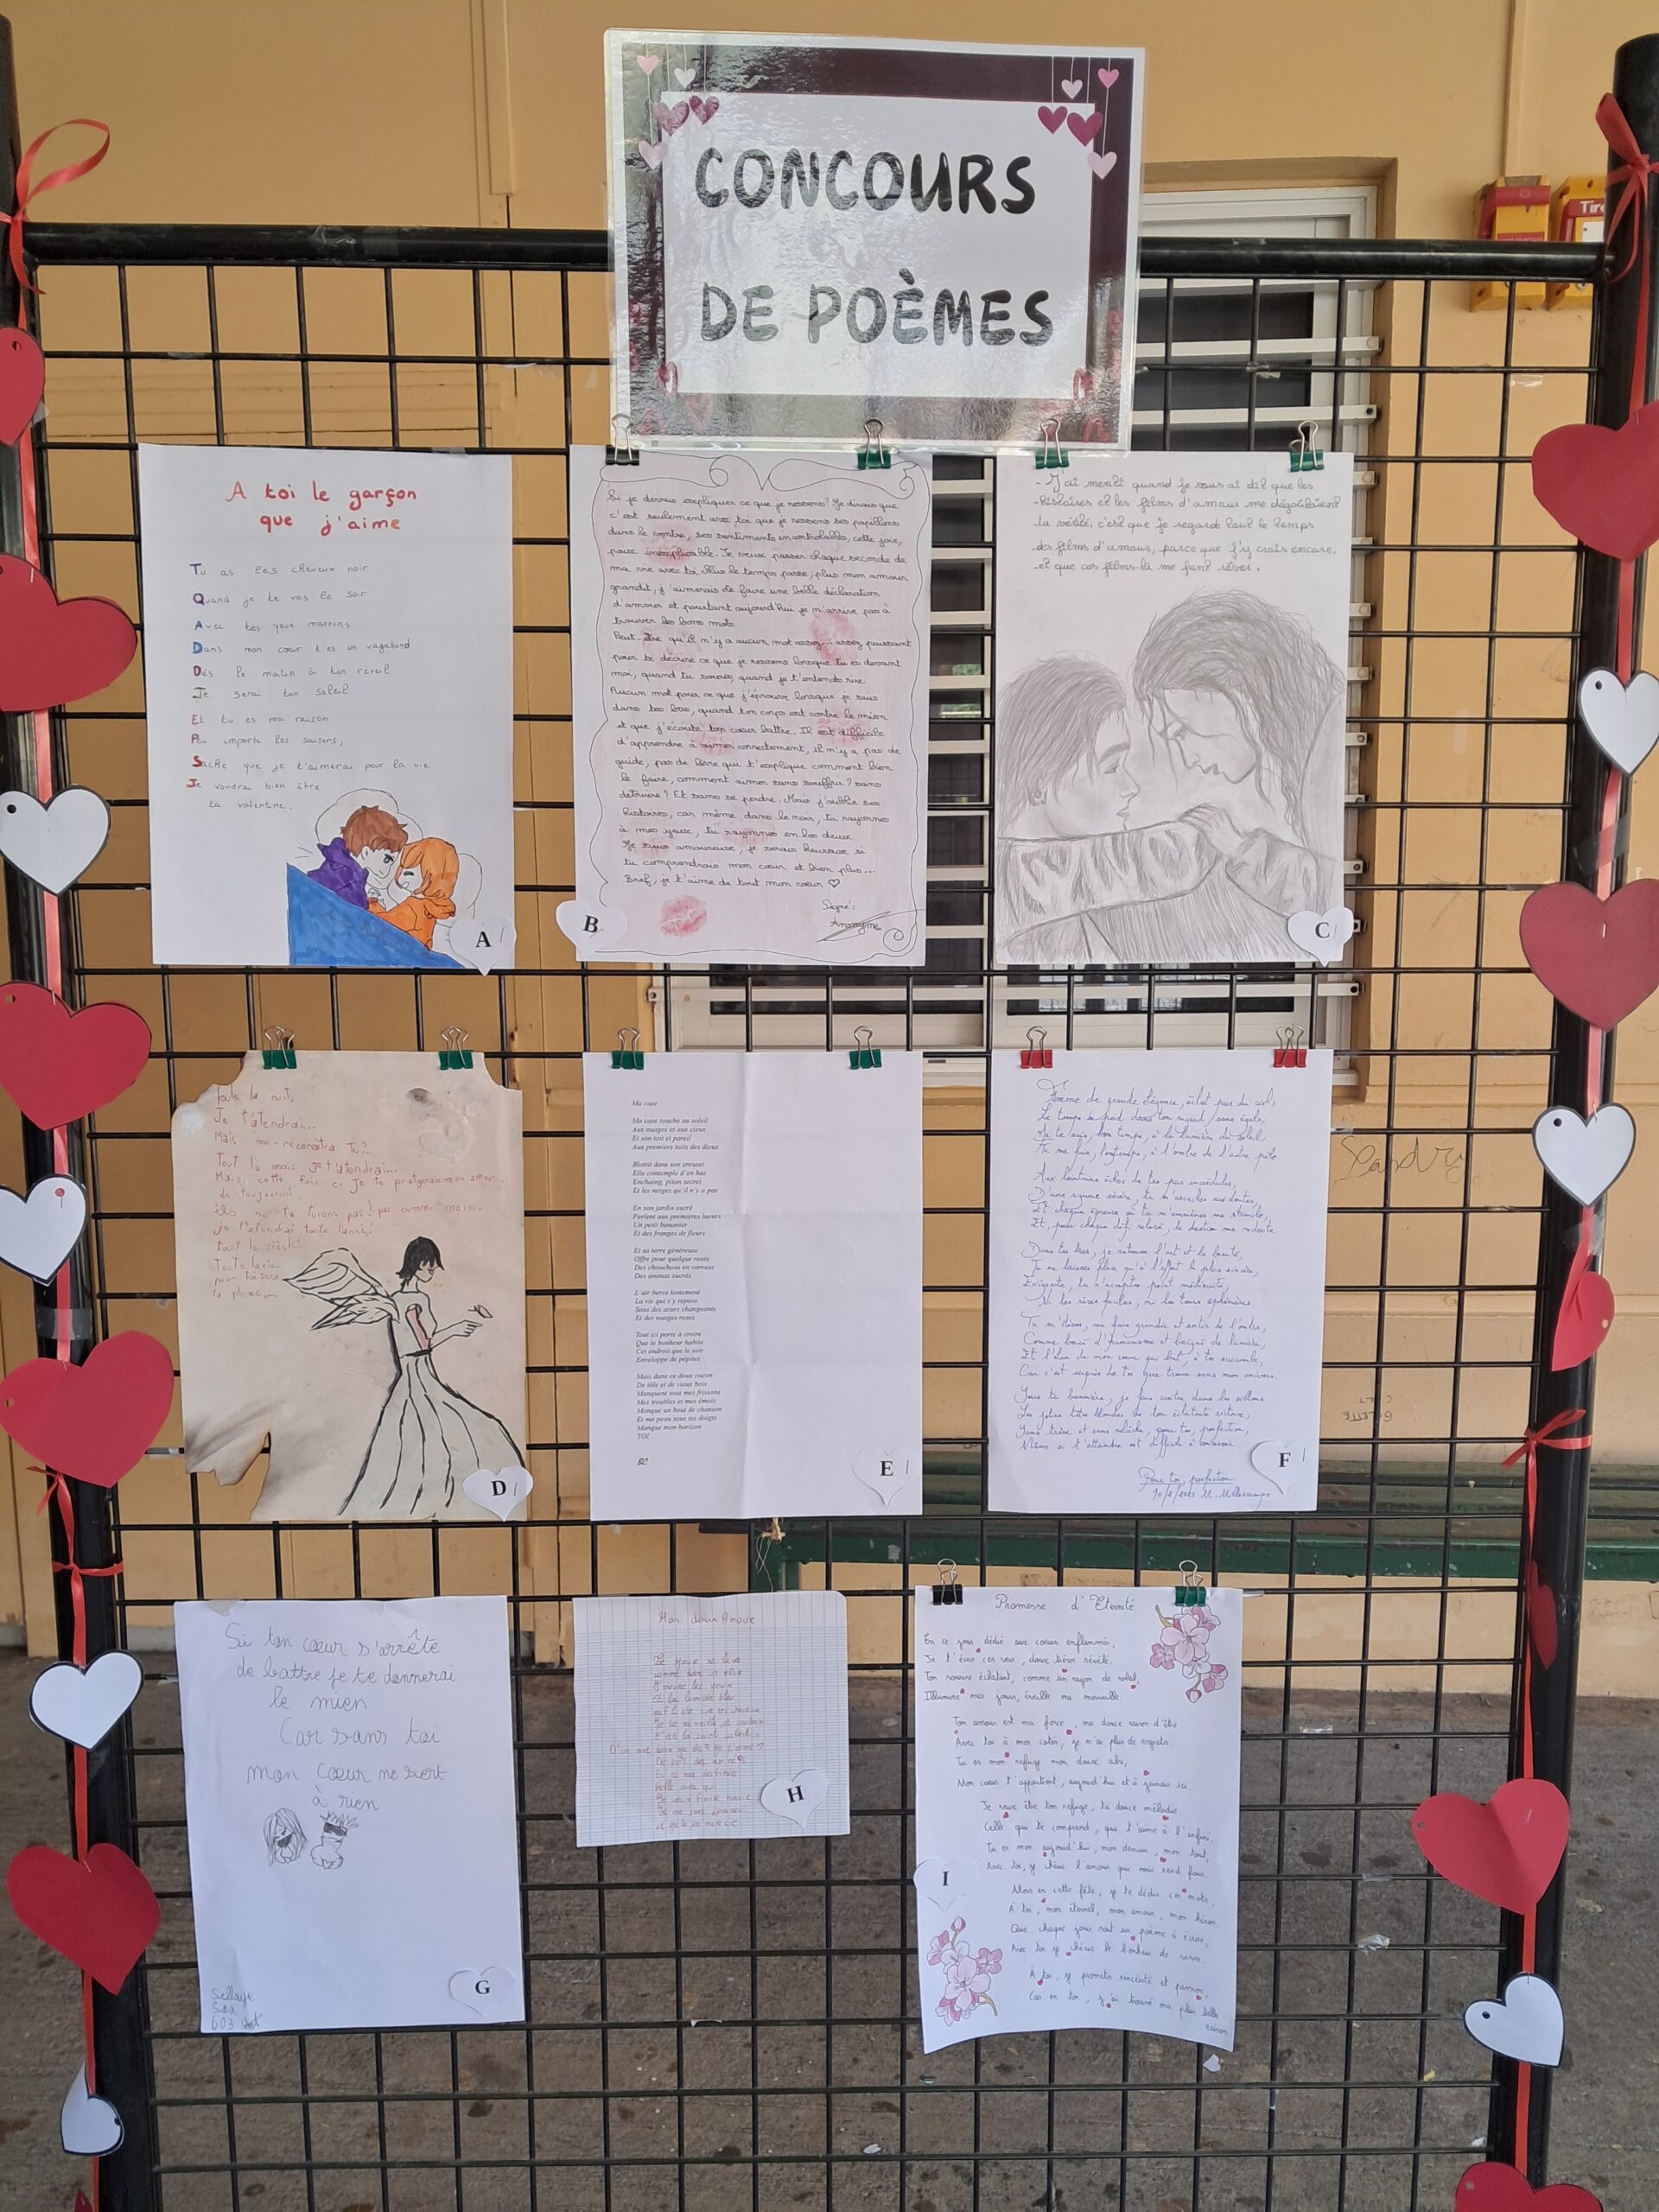 CONCOURS
DE POÈMES
Tire
A toi le garçon
que j'aime
Tu as les cheveux noir
Quand je te vois le soir
Avec tes yeux marrons
Dans mon cœur t'es un vagabond
Dès le matin à ton réveil
Je serai ton soleil
Et tu es ma raison
Peu importe les saisons,
Sache que je t'aimerai pour la vie.
Je voudrai bien être
ta valentine.
A
Si je devais expliquer ce que je ressens? Je dirais que
c'est seulement avec toi que je ressens ses papillons
dans le ventre, ses sentiments incontrolables, cette joie,
inexplicable. Je veux passer chaque seconde de
ma vie avec toi. Plus le temps passe, plus mon amour
grandit, j'aimerais te faire une belle déclaration
d'amour et pourtant aujourd'hui je n'arrive pas à
trouver les bons mots.
Peut-être qu'il n'y a aucun mot assez... assez puissant
pour te décrire ce que je ressens lorsque tu es devant
moi, quand tu souris, quand je t'entends rire.
Aucun mot pour ce que j'éprouve lorsque je suis
dans tes bras, quand ton corps est contre le mien
et que j'écoute ton cœur battre. Il est difficile
d'apprendre à aimer correctement, il n'y a pas de
guide, pas de livre qui t'explique comment bien
le faire, comment aimer sans souffrir? sans
détruire? Et sans se perdre. Mais j'oublie ses
histoires, car même dans le noir, tu rayonnes
à mes yeux, tu rayonnes en les deux.
Je suis amoureuse, je serais heureuse si
tu comprendrais mon cœur et bien plus...
Bref, je t'aime de tout mon cœur ♡
Signé:
Anonyme
B
- J'ai menti quand je vous ai dit que les
-histoires et les films d'amour me dégoûtaient
-la vérité, c'est que je regarde tout le temps
-des films d'amour, parce que j'y crois encore,
-et que ces films-là me font rêver.
C
Toute la nuit,
Je t'atendrai...
Mais me reconaitra Tu?..
Tout le mois je t'atendrai...
Mais cette fois ci je te protgerai mon amour...
ils ne te feront pas! pas comme moi...
je t'atendrai toute l'anné!
tout le siècle!
Toute la vie..
D
Ma case
Ma case touche au soleil
Aux nuages et aux cieux
Et son toit et pareil
Aux premiers toits des dieux
Blottit dans son creuset
Elle contemple d'en bas
Enchaing, piton secret
Et les neiges qu'il n'y a pas
En son jardin sucré
Perlent aux premières lueurs
Un petit bananier
Et des franges de fleurs
Et sa terre généreuse
Offre pour quelque rosée
Des chouchous en vareuse
Des ananas sucrés
L'air berce lentement
La vie qui s'y repose
Sous des azurs changeants
Et des nuages roses
Tout ici porte à croire
Que le bonheur habite
Cet endroit que le soir
Enveloppe de pépites
Mais dans ce doux cocon
De tôle et de vieux bois
Manquent tous mes frissons
Mes troubles et mes émois
Manque un bout de chanson
Et ma peau sous tes doigts
Manque mon horizon
TOI.
E
Femme de grande élégance, éclat pur du ciel,
Le temps se perd dans ton regard, sans égale,
Je te suis, bon temps, à la lumière du soleil
Tu me fuis, longtemps, à l'ombre de l'astre pâle
Aux lointains échos de tes pas incrédules,
D'une rigueur sévère, tu m'arraches aux doutes,
Et, pour chaque défi relevé, le destin me redoute.
Dans tes bras, je retrouve l'art et la beauté,
Tu ne laisses place qu'à l'effort le plus sincère,
Exigeante, tu n'acceptes point médiocrité,
Ni les rêves futiles, ni les tours éphémères.
Tu m'élèves, me fais grandir et sortir de l'ombre,
Et l'élan de mon cœur qui bat, à toi succombe,
Car c'est auprès de toi que trouve sens mon univers.
Sous ta bannière, je fais croître dans les sillons
Sans trève et sans relâche, pour toi, perfection,
Même si t'attendre est difficile
Pour toi, perfection
F
Si ton cœur s'arrête
de battre je te donnerai
le mien
Car sans toi
mon cœur ne sert
à rien
603
G
Mon doux Amour
Le jour se lève
comme dans un rêve
J'ouvre les yeux
H
Promesse d'Eternité
En ce jour dédié aux cœurs enflammés,
Je t'écris ces vers, doux trésor révélé.
Ton sourire éclatant, comme un rayon de soleil,
Illumine mes jours, éveille ma merveille.
Ton amour est ma force, ma douce raison d'être
Avec toi à mes côtés, je n'ai plus de regrets.
Tu es mon refuge mon doux abri,
Mon cœur t'appartient, aujourd'hui et à jamais ici.
Je veux être ton refuge, ta douce mélodie
Celle qui te comprend, qui t'aime à l'infini.
Tu es mon aujourd'hui, mon demain, mon tout,
Avec toi, je chéris l'amour qui nous rend fous.
Alors en cette fête, je te dédie ces mots,
À toi, mon éternel, mon amour, mon héros.
Que chaque jour soit un poème à écrire,
Avec toi je chéris le bonheur de vivre.
À toi, je promets sincérité et passion,
Car en toi, j'ai trouvé ma plus belle
raison
I